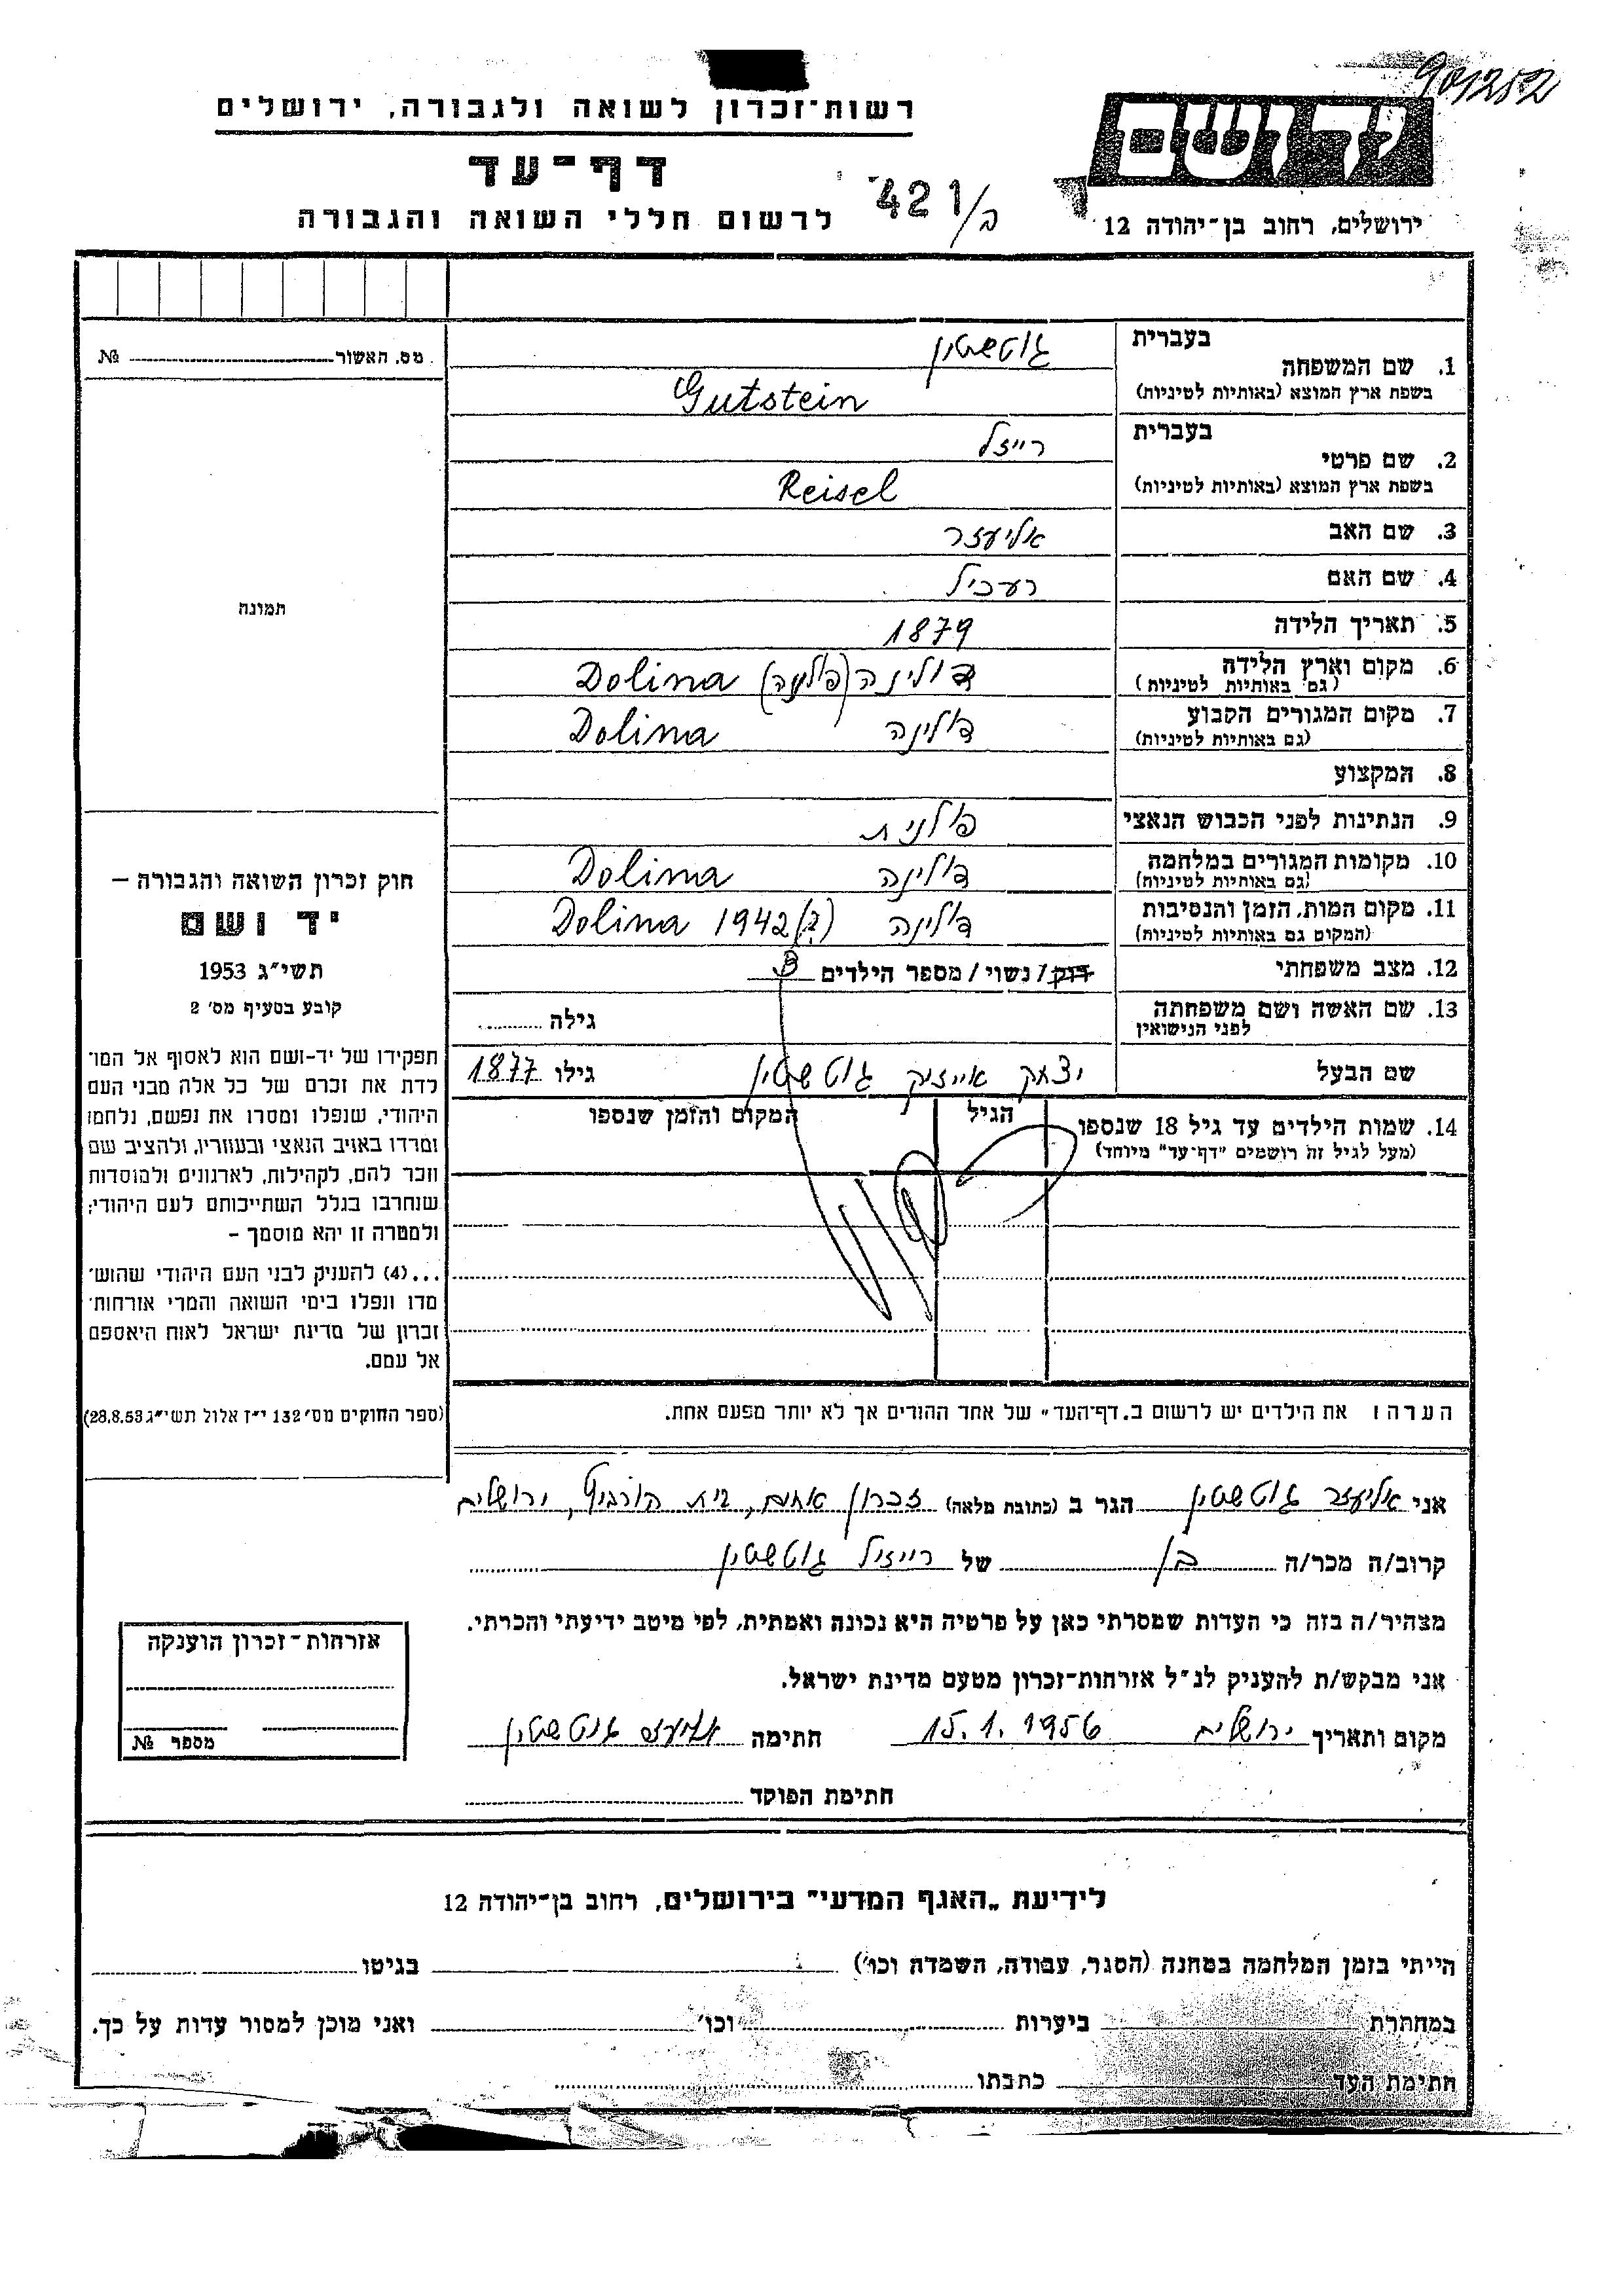 901252
רשות־זכרון לשואה ולגבורה, ירושלים
דף־עד
לרשום חללי השואה והגבורה
421/ב
ירושלים, רחוב בן־יהודה 12
מס. האשור №
בעברית
1. שם המשפחה
גוטשטיין
בשפת ארץ המוצא (באותיות לטיניות)
Gutstein
בעברית
2. שם פרטי
רייזל
בשפת ארץ המוצא (באותיות לטיניות)
Reisel
3. שם האב אליעזר
4. שם האם
5. תאריך הלידה 1879
6. מקום וארץ הלידה דולינה (פולניה) Dolina
(גם באותיות לטיניות)
7. מקום המגורים הקבוע דולינה Dolina
(גם באותיות לטיניות)
8. המקצוע
9. הנתינות לפני הכבוש הנאצי פולנית
10. מקומות המגורים במלחמה דולינה Dolina
(גם באותיות לטיניות)
11. מקום המות, הזמן והנסיבות דולינה Dolina 1942 (?)
(המקום גם באותיות לטיניות)
12. מצב משפחתי רוק/נשוי/מספר הילדים
13. שם האשה ושם משפחתה גילה
לפני הנישואין
שם הבעל יצחק אייזיק גוטשטיין גילו 1877
14. שמות הילדים עד גיל 18 שנספו הגיל המקום והזמן שנספו
(מעל לגיל זה רושמים "דף־עד" מיוחד)
הערה: את הילדים יש לרשום ב„דף־העד" של אחד ההורים אך לא יותר מפעם אחת.
תמונה
חוק זכרון השואה והגבורה –
יד ושם
תשי"ג 1953
קובע בסעיף מס׳ 2
תפקידו של יד-ושם הוא לאסוף אל המו־
לדת את זכרם של כל אלה מבני העם
היהודי, שנפלו ומסרו את נפשם, נלחמו
ומרדו באויב הנאצי ובעוזריו, ולהציב שם
וזכר להם, לקהילות, לארגונים ולמוסדות
שנחרבו בגלל השתייכותם לעם היהודי;
ולמטרה זו יהא מוסמך –
...(4) להעניק לבני העם היהודי שהוש־
מדו ונפלו בימי השואה והמרי אזרחות־
זכרון של מדינת ישראל לאות היאספם
אל עמם.
(ספר החוקים מס׳ 132 י"ז אלול תשי"ג 28.8.53)
אני אליעזר גוטשטיין הגר ב (כתובת מלאה) זכרון אחים, בית ירושלים
קרוב/ה מכר/ה בן של רייזיל גוטשטיין
מצהיר/ה בזה כי העדות שמסרתי כאן על פרטיה היא נכונה ואמתית, לפי מיטב ידיעתי והכרתי.
אני מבקש/ת להעניק לנ"ל אזרחות-זכרון מטעם מדינת ישראל.
מקום ותאריך ירושלים 15.1.1956 חתימה אליעזר גוטשטיין
חתימת הפוקד
אזרחות־זכרון הוענקה
מספר №
לידיעת „האגף המדעי" בירושלים, רחוב בן־יהודה 12
הייתי בזמן המלחמה במחנה (הסגר, עבודה, השמדה וכו׳) בגיטו
במחתרת ביערות וכו׳ ואני מוכן למסור עדות על כך.
חתימת העד כתבתו